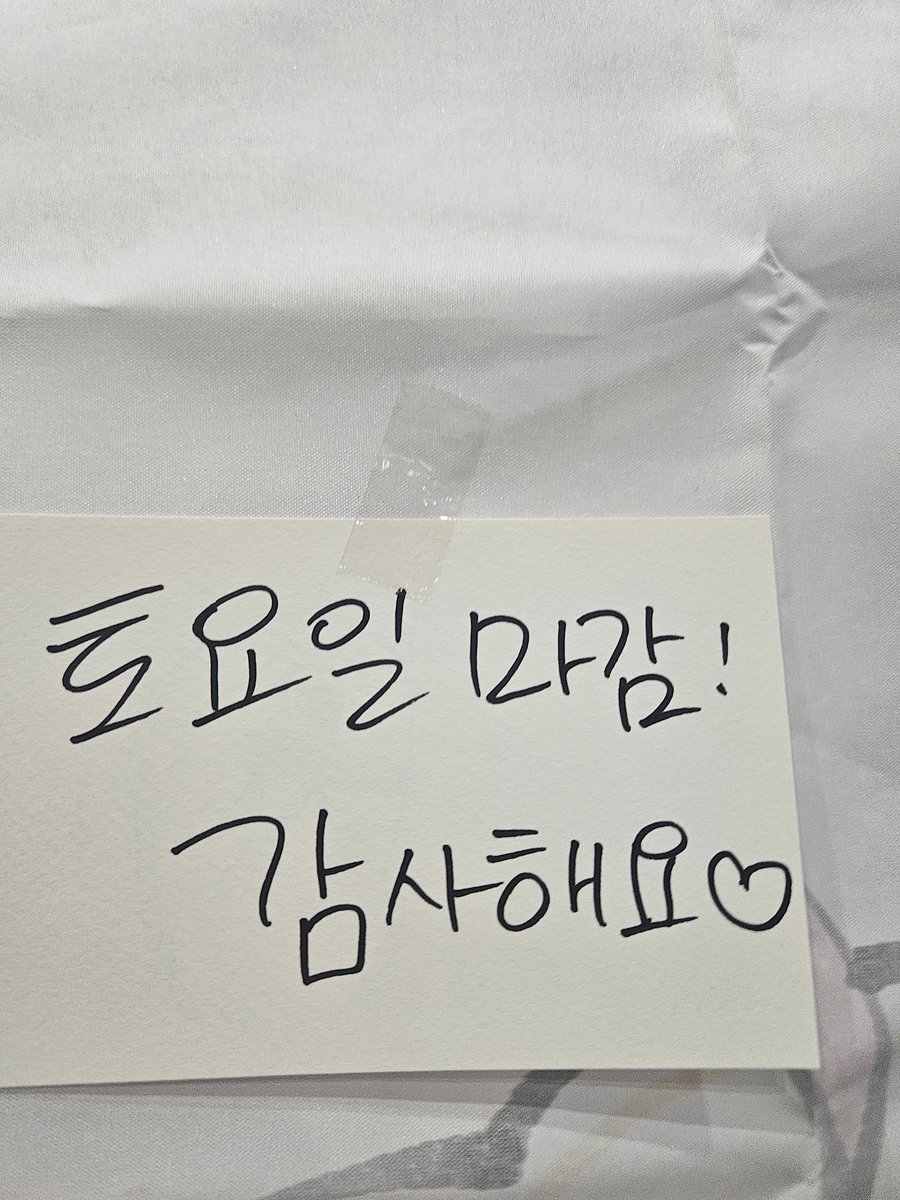 토요일 마감!
감사해요♡